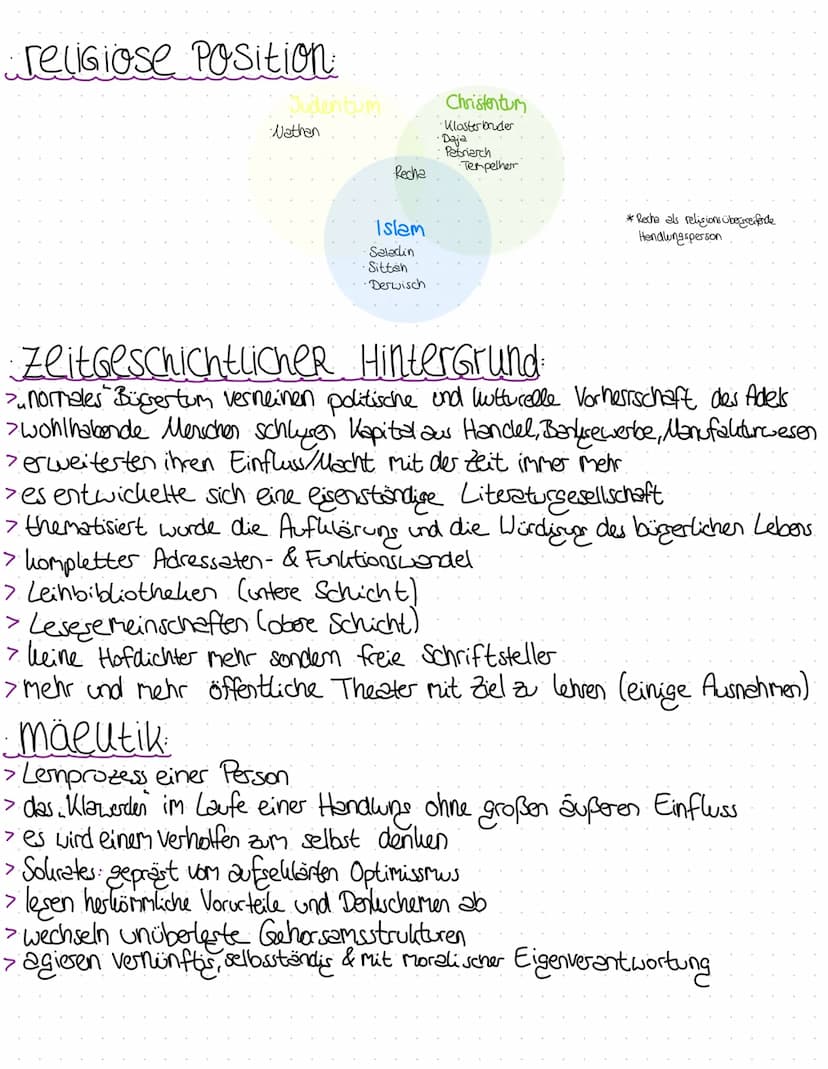 · religiöse Position:
Judentum
· Nathan
Christentum
· Klosterbruder
· Daja
· Patriarch
· Tempelherr
Recha
Islam
· Saladin
· Sittah
· Derwisch
* Recha als religionsübergreifende
Handlungsperson
· Zeitgeschichtlicher Hintergrund:
> „normales" Bürgertum verneinen politische und kulturelle Vorherrschaft des Adels
> wohlhabende Menschen schlugen Kapital aus Handel, Bankgewerbe, Manufakturwesen
> erweiterten ihren Einfluss/Macht mit der Zeit immer mehr
> es entwickelte sich eine eigenständige Literaturgesellschaft
> thematisiert wurde die Aufklärung und die Würdigung des bürgerlichen Lebens
> kompletter Adressaten- & Funktionswandel
> Leihbibliotheken (untere Schicht)
> Lesegemeinschaften (obere Schicht)
> keine Hofdichter mehr sondern freie Schriftsteller
> mehr und mehr öffentliche Theater mit Ziel zu lehren (einige Ausnahmen)
· Mäeutik:
> Lernprozess einer Person
> das „Klarwerden" im Laufe einer Handlung ohne großen äußeren Einfluss
> es wird einem verholfen zum selbst denken
> Sokrates: geprägt vom aufgeklärten Optimissmus
> legen herkömmliche Vorurteile und Denkschemen ab
> wechseln unüberlegte Gehorsamsstrukturen
> agieren vernünftig, selbsständig & mit moralischer Eigenverantwortung